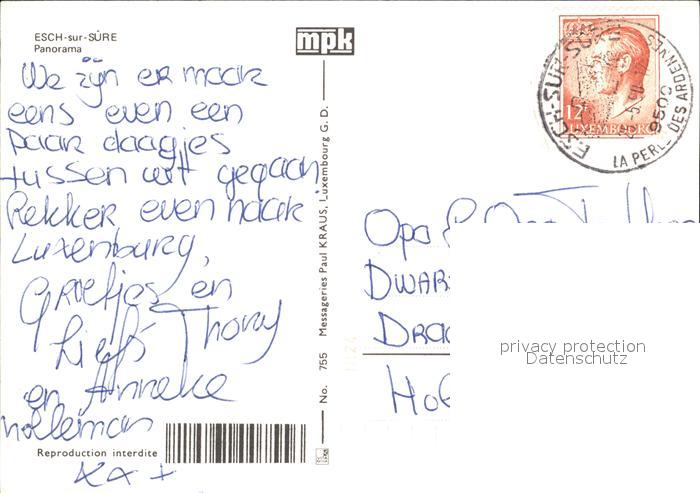 ESCH-sur-SÛRE
Panorama
mpk
We zijn er maar
eens even een
paar daagjes
tussen uit gegaan,
lekker even naar
Luxenburg,
Groetjes en
Liefs Thony
en Anneke
xx+
Reproduction interdite
No. 755 Messageries Paul KRAUS, Luxembourg G. D.
12F
LUXEMBOURG
ESCH-SUR-SÛRE
9650
LA PERLE DES ARDENNES
Opa & Oma
privacy protection
Datenschutz